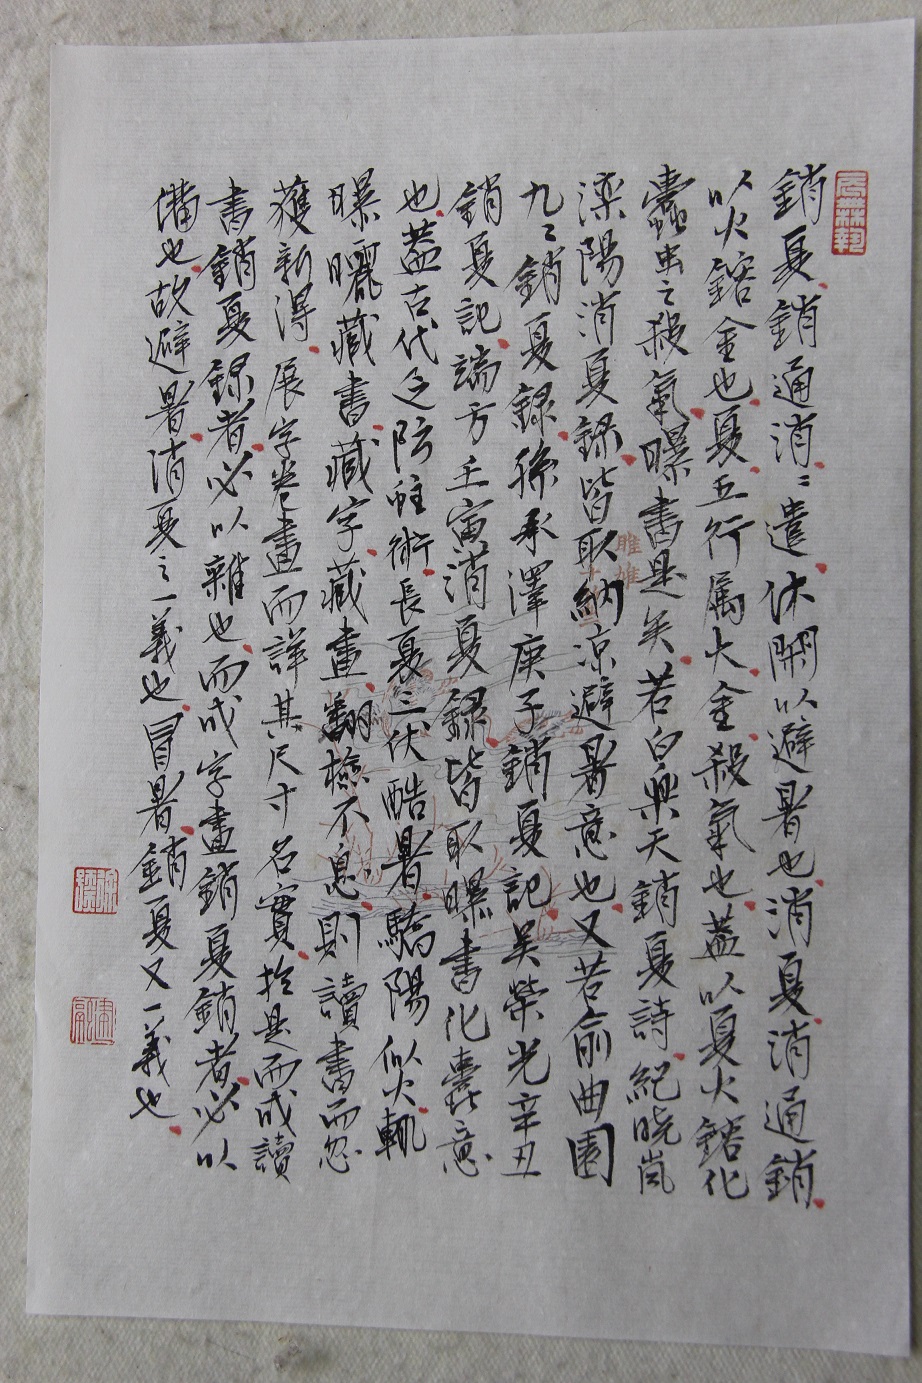 銷夏銷通消〻遣休閑以避暑也消夏消通銷
以火鎔金也夏五行属火金殺氣也蓋以夏火鎔化
蠹虫之殺氣曝書是矣若白樂天銷夏詩紀晓嵐
滦陽消夏録皆取納涼避暑意也又若俞曲園
九〻銷夏録孫承澤庚子銷夏記吴榮光辛丑
銷夏記端方壬寅消夏録皆取曝書化蠹意
也蓋古代之防蛀術長夏三伏酷暑驕陽似火輒
曝曬藏書藏字藏畫翻檢不息則讀書而忽
獲新得展字卷畫而詳其尺寸名實於是而成讀
書銷夏録者必以雜也而成字畫銷夏銷者必以
備也故避暑消夏之一義也冒暑銷夏又一義也